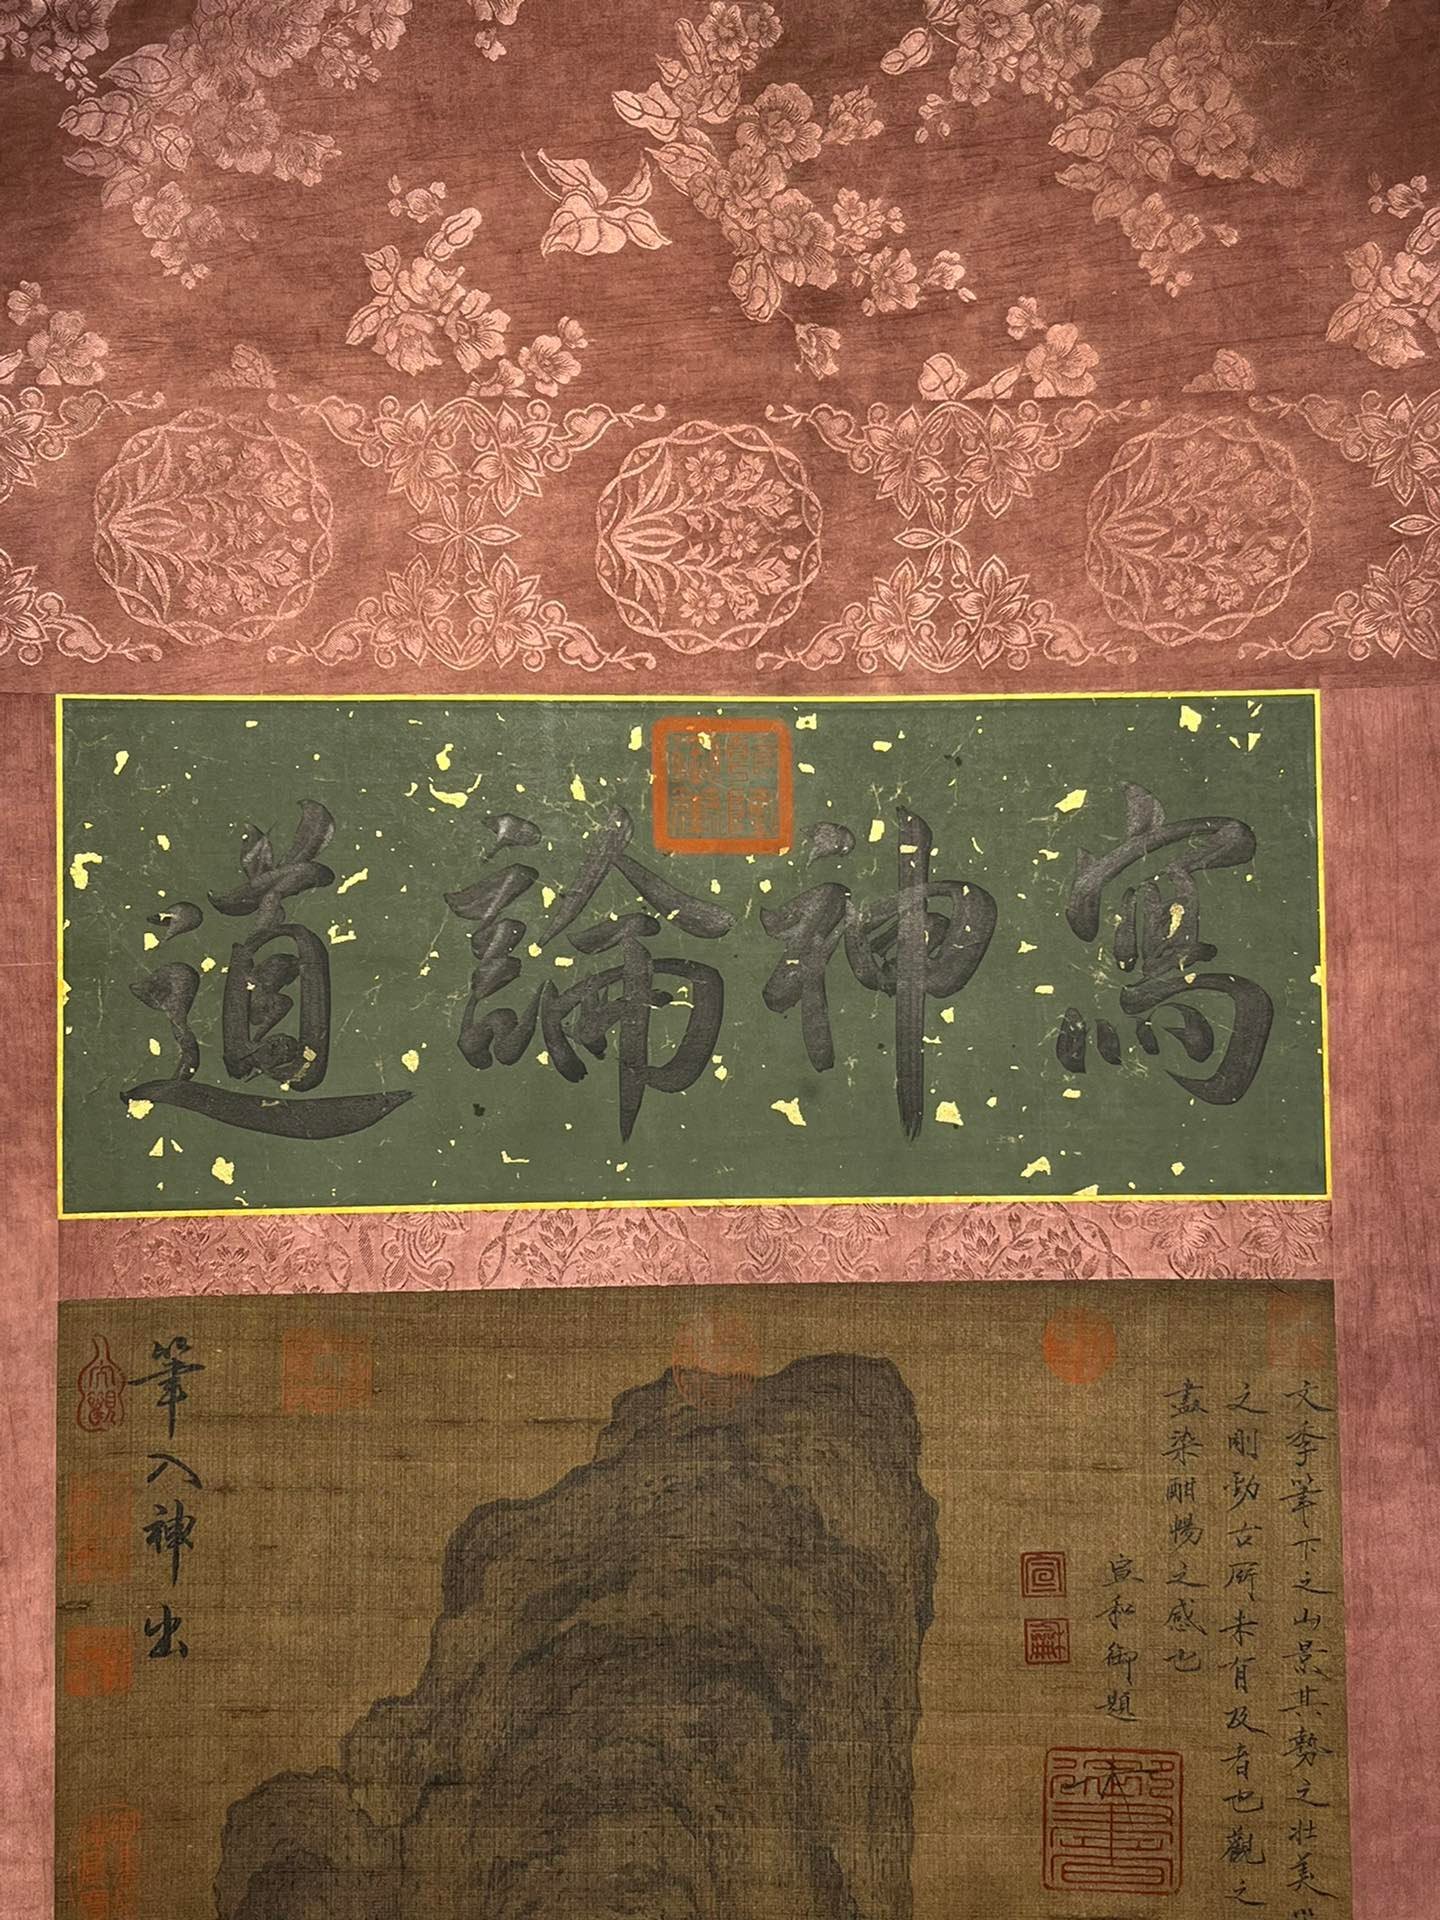 寫神論道
文季筆下之山景其勢之壯美
之剛勁古所未有及者也觀之
畫染酣暢之感也
宣和御題
宣
龢
筆入神出
大觀